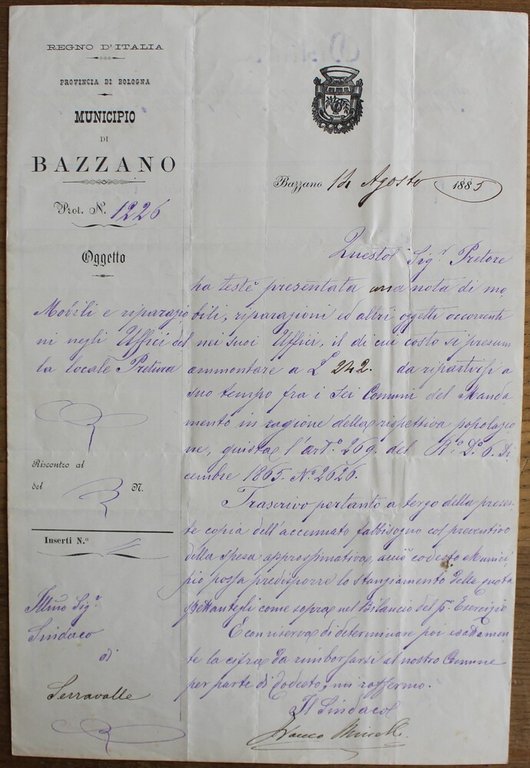 REGNO D'ITALIA
PROVINCIA DI BOLOGNA
MUNICIPIO
DI
BAZZANO
Prot. N. 1226
Oggetto
Mobili e riparazio
ni negli Uffici del
la locale Pretura
Riscontro al
del N.
Inserti N.°
Illmo Sigr.
Sindaco
di
Serravalle
Bazzano 14 Agosto 1885
Questo Sigr. Pretore
ha testè presentata una nota di mo
bili, riparazioni ed altri oggetti occorrenti
nei suoi Uffici, il di cui costo si presume
ammontare a L 242. da ripartirsi a
suo tempo fra i sei Comuni del Manda
mento in ragione della rispettiva popolazio
ne, giusta l'arto. 269. del Ro. Do. 6. Di
cembre 1865. No 2626.
Trascrivo pertanto a tergo della presen
te copia dell'accennato fabbisogno col preventivo
della spesa approssimativa, acciò codesto Munici
pio possa predisporre lo stanziamento della quota
spettantegli come sopra nel Bilancio del po. Esercizio
E con riserva di determinare poi esattamen
te la cifra da rimborsarsi al nostro Comune
per parte di Codesto, mi raffermo.
Il Sindaco